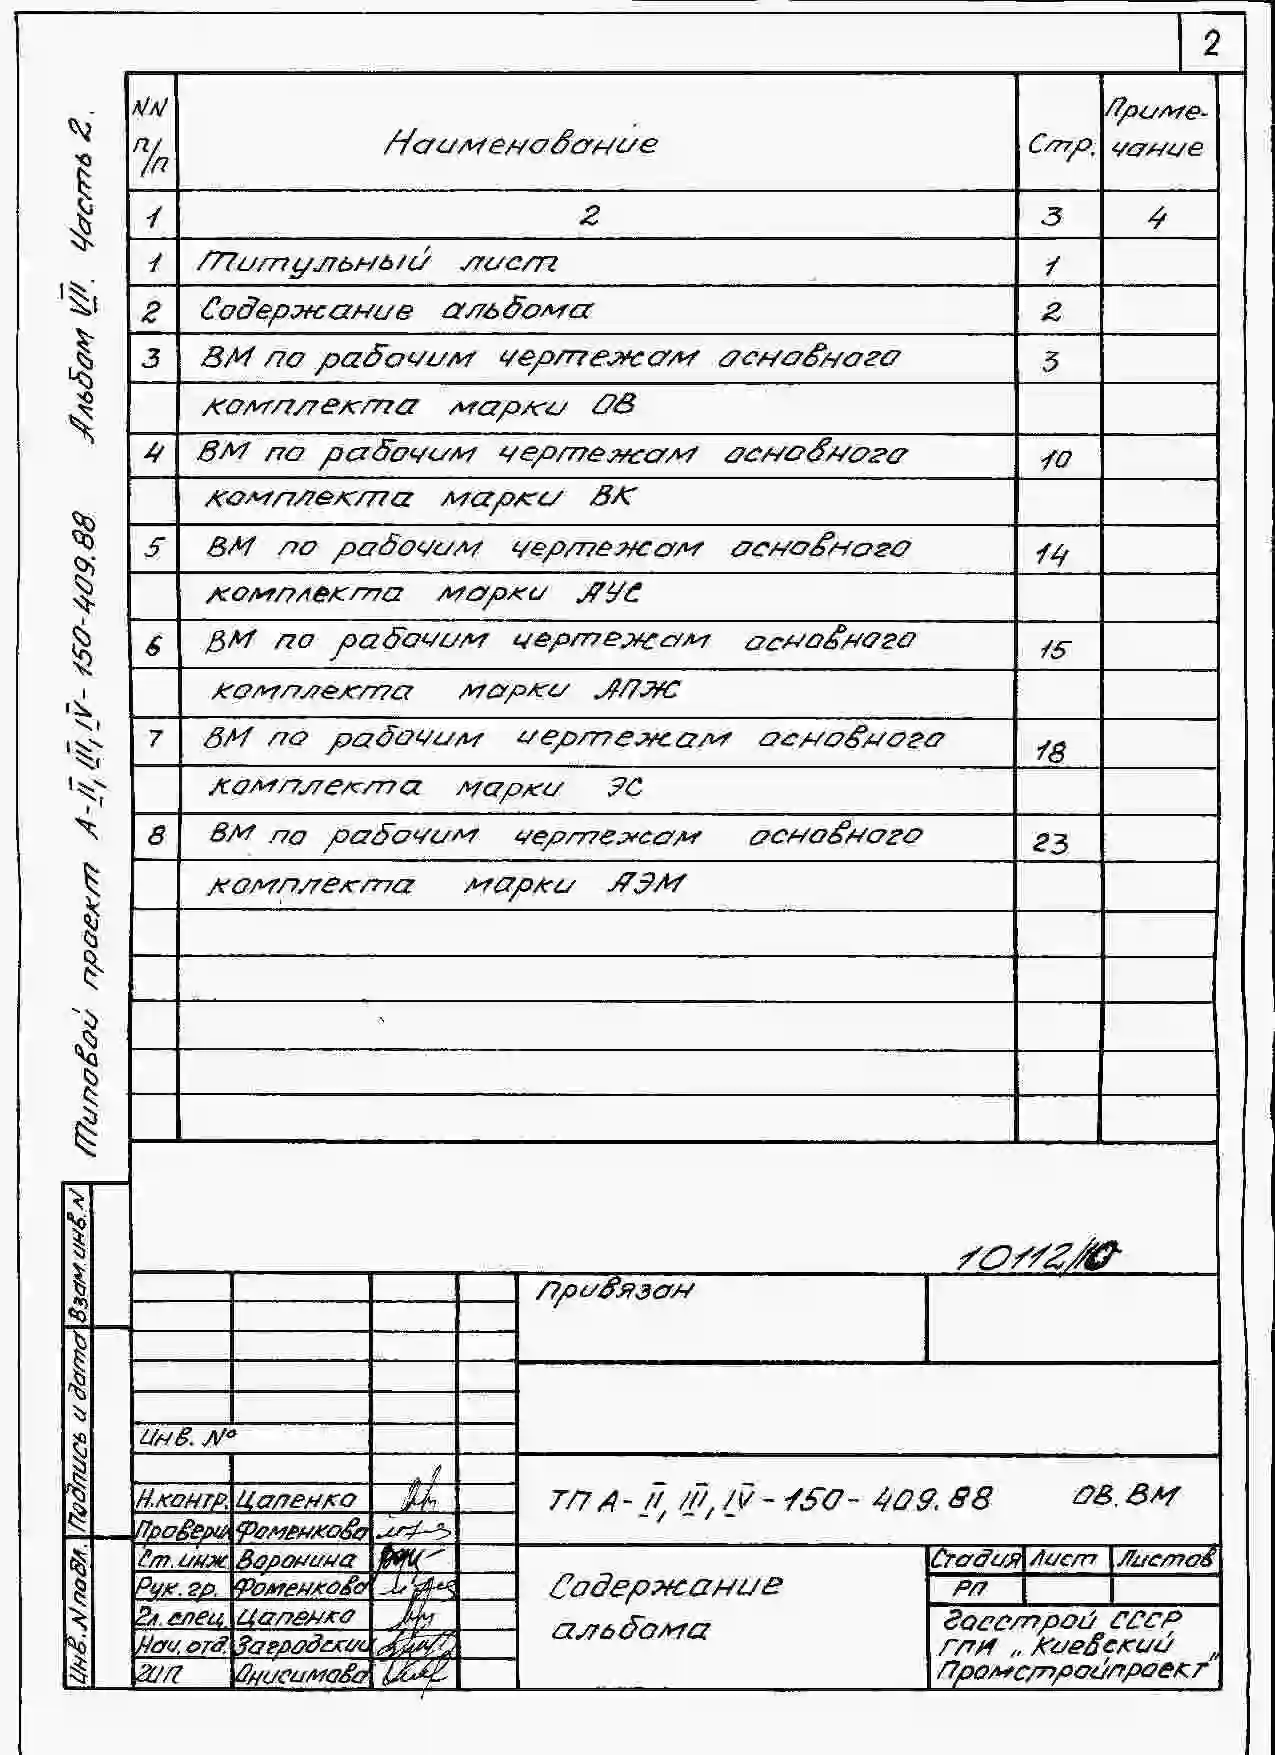 2
Типовой проект А-II, III, IV-150-409.88 Альбом VII. Часть 2.
NN п/п Наименование Стр. Приме-чание
1 2 3 4
1 Титульный лист 1
2 Содержание альбома 2
3 ВМ по рабочим чертежам основного 3
комплекта марки ОВ
4 ВМ по рабочим чертежам основного 10
комплекта марки ВК
5 ВМ по рабочим чертежам основного 14
комплекта марки АУС
6 ВМ по рабочим чертежам основного 15
комплекта марки АПЖ
7 ВМ по рабочим чертежам основного 18
комплекта марки ЭС
8 ВМ по рабочим чертежам основного 23
комплекта марки АЭМ
Взам.инв.N
Подпись и дата
Инв.N подл.
10112/10
Привязан
Инв. №
Н.контр. Цапенко
Проверил Фоменкова
Ст.инж. Воронина
Рук.гр. Фоменкова
Гл.спец. Цапенко
Нач.отд. Загродский
ГИП Анисимова
ТП А-II, III, IV-150-409.88 ОВ.ВМ
Содержание
альбома
Стадия Лист Листов
РП
Госстрой СССР
ГПИ „Киевский
Промстройпроект"